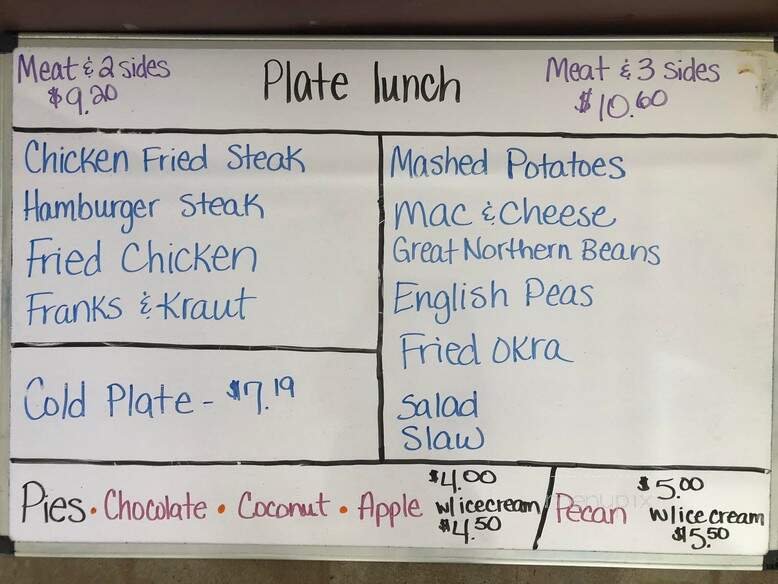 Meat & 2 sides
$9.20
Plate lunch
Meat & 3 sides
$10.60
Chicken Fried Steak
Hamburger Steak
Fried Chicken
Franks & Kraut
Cold Plate - $7.19
Mashed Potatoes
Mac & Cheese
Great Northern Beans
English Peas
Fried Okra
Salad
Slaw
Pies • Chocolate • Coconut • Apple
$4.00
w/ icecream
$4.50
Pecan
$5.00
w/ice cream
$5.50